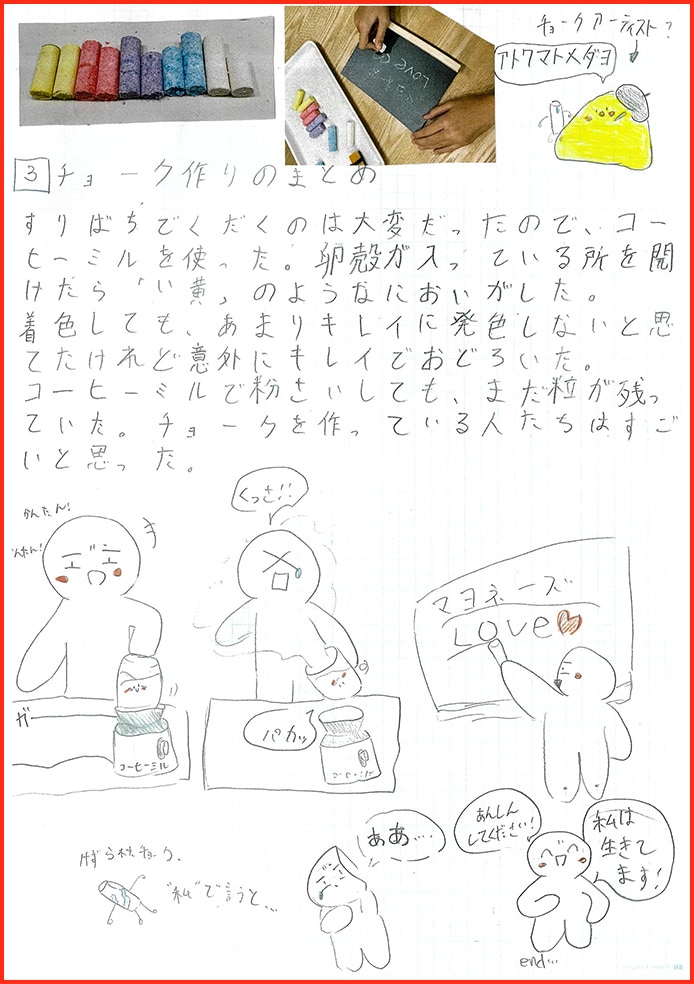 チョークアーティスト?
アトワマトメダヨ
LOVE
3 チョーク作りのまとめ
すりばちでくだくのは大変だったので、コー
ヒーミルを使った。卵殻が入っている所を開
けたら「い黄」のようなにおいがした。
着色しても、あまりキレイに発色しないと思
てたけれど意外にキレイでおどろいた。
コーヒーミルで粉さいしても、まだ粒が残っ
ていた。チョークを作っている人たちはすご
いと思った。
かんたん!
んたん!
ガー
コーヒーミル
くっさ!!
パカッ
コーヒーミル
マヨネーズ
LOVE
けずられたチョーク、
"私"で言うと...
ああ...
あんしん
してください!
私は
生きて
います!
end...